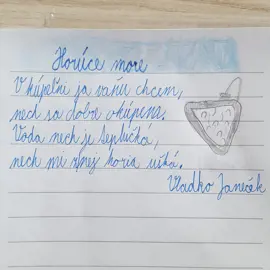 Horúce more
V kúpeľni ja vaňu chcem,
nech sa dobre okúpem.
Voda nech je teplučká,
nech mi z nej horia ušká.
Vladko Janeček